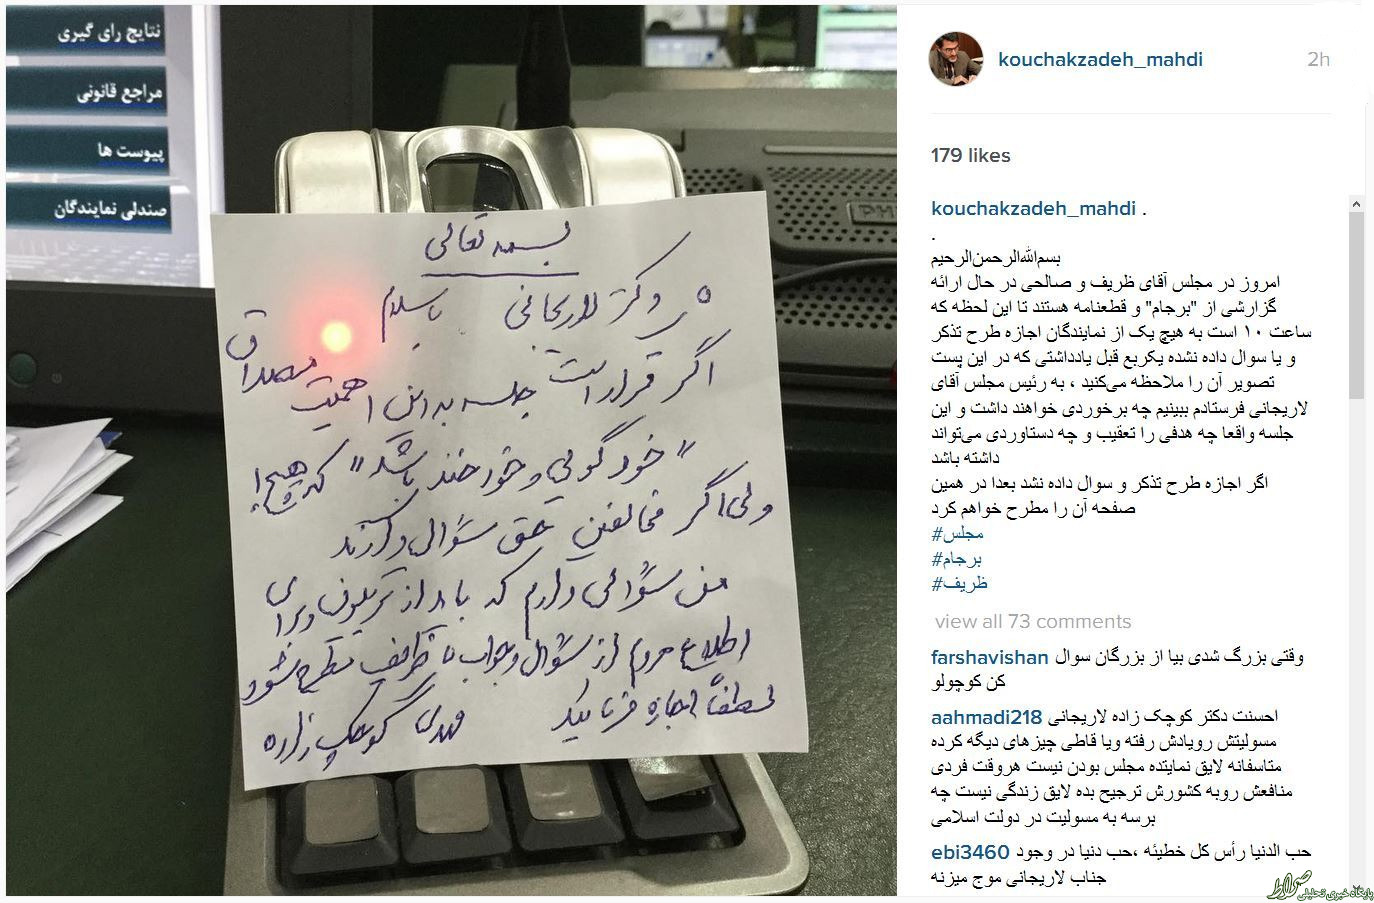 نتایج رای گیری
مراجع قانونی
پیوست ها
صندلی نمایندگان
بسمه تعالی
دکتر لاریجانی باسلام
اگر قرار است جلسه به این اهمیت مصداق
"خود گویی و خود خند باشد" که هیچ!
ولی اگر مخالفین حق سؤال دارند
من سؤالی دارم که باید از تریبون و برای
اطلاع مردم از سؤال و جواب با ظریف مطرح شود
لطفاً اجازه فرمایید مهدی کوچک زاده
kouchakzadeh_mahdi 2h
179 likes
kouchakzadeh_mahdi .
.
بسم‌الله‌الرحمن‌الرحیم
امروز در مجلس آقای ظریف و صالحی در حال ارائه
گزارشی از "برجام" و قطعنامه هستند تا این لحظه که
ساعت ۱۰ است به هیچ یک از نمایندگان اجازه طرح تذکر
و یا سوال داده نشده یکربع قبل یادداشتی که در این پست
تصویر آن را ملاحظه می‌کنید ، به رئیس مجلس آقای
لاریجانی فرستادم ببینیم چه برخوردی خواهند داشت و این
جلسه واقعا چه هدفی را تعقیب و چه دستاوردی می‌تواند
داشته باشد
اگر اجازه طرح تذکر و سوال داده نشد بعدا در همین
صفحه آن را مطرح خواهم کرد
#مجلس
#برجام
#ظریف
view all 73 comments
farshavishan وقتی بزرگ شدی بیا از بزرگان سوال
کن کوچولو
aahmadi218 احسنت دکتر کوچک زاده لاریجانی
مسولیتش رویادش رفته ویا قاطی چیزهای دیگه کرده
متاسفانه لایق نمایتده مجلس بودن نیست هروقت فردی
منافعش روبه کشورش ترجیح بده لایق زندگی نیست چه
برسه به مسولیت در دولت اسلامی
ebi3460 حب الدنیا رأس کل خطیئه ،حب دنیا در وجود
جناب لاریجانی موج میزنه
صراط
پایگاه خبری تحلیلی